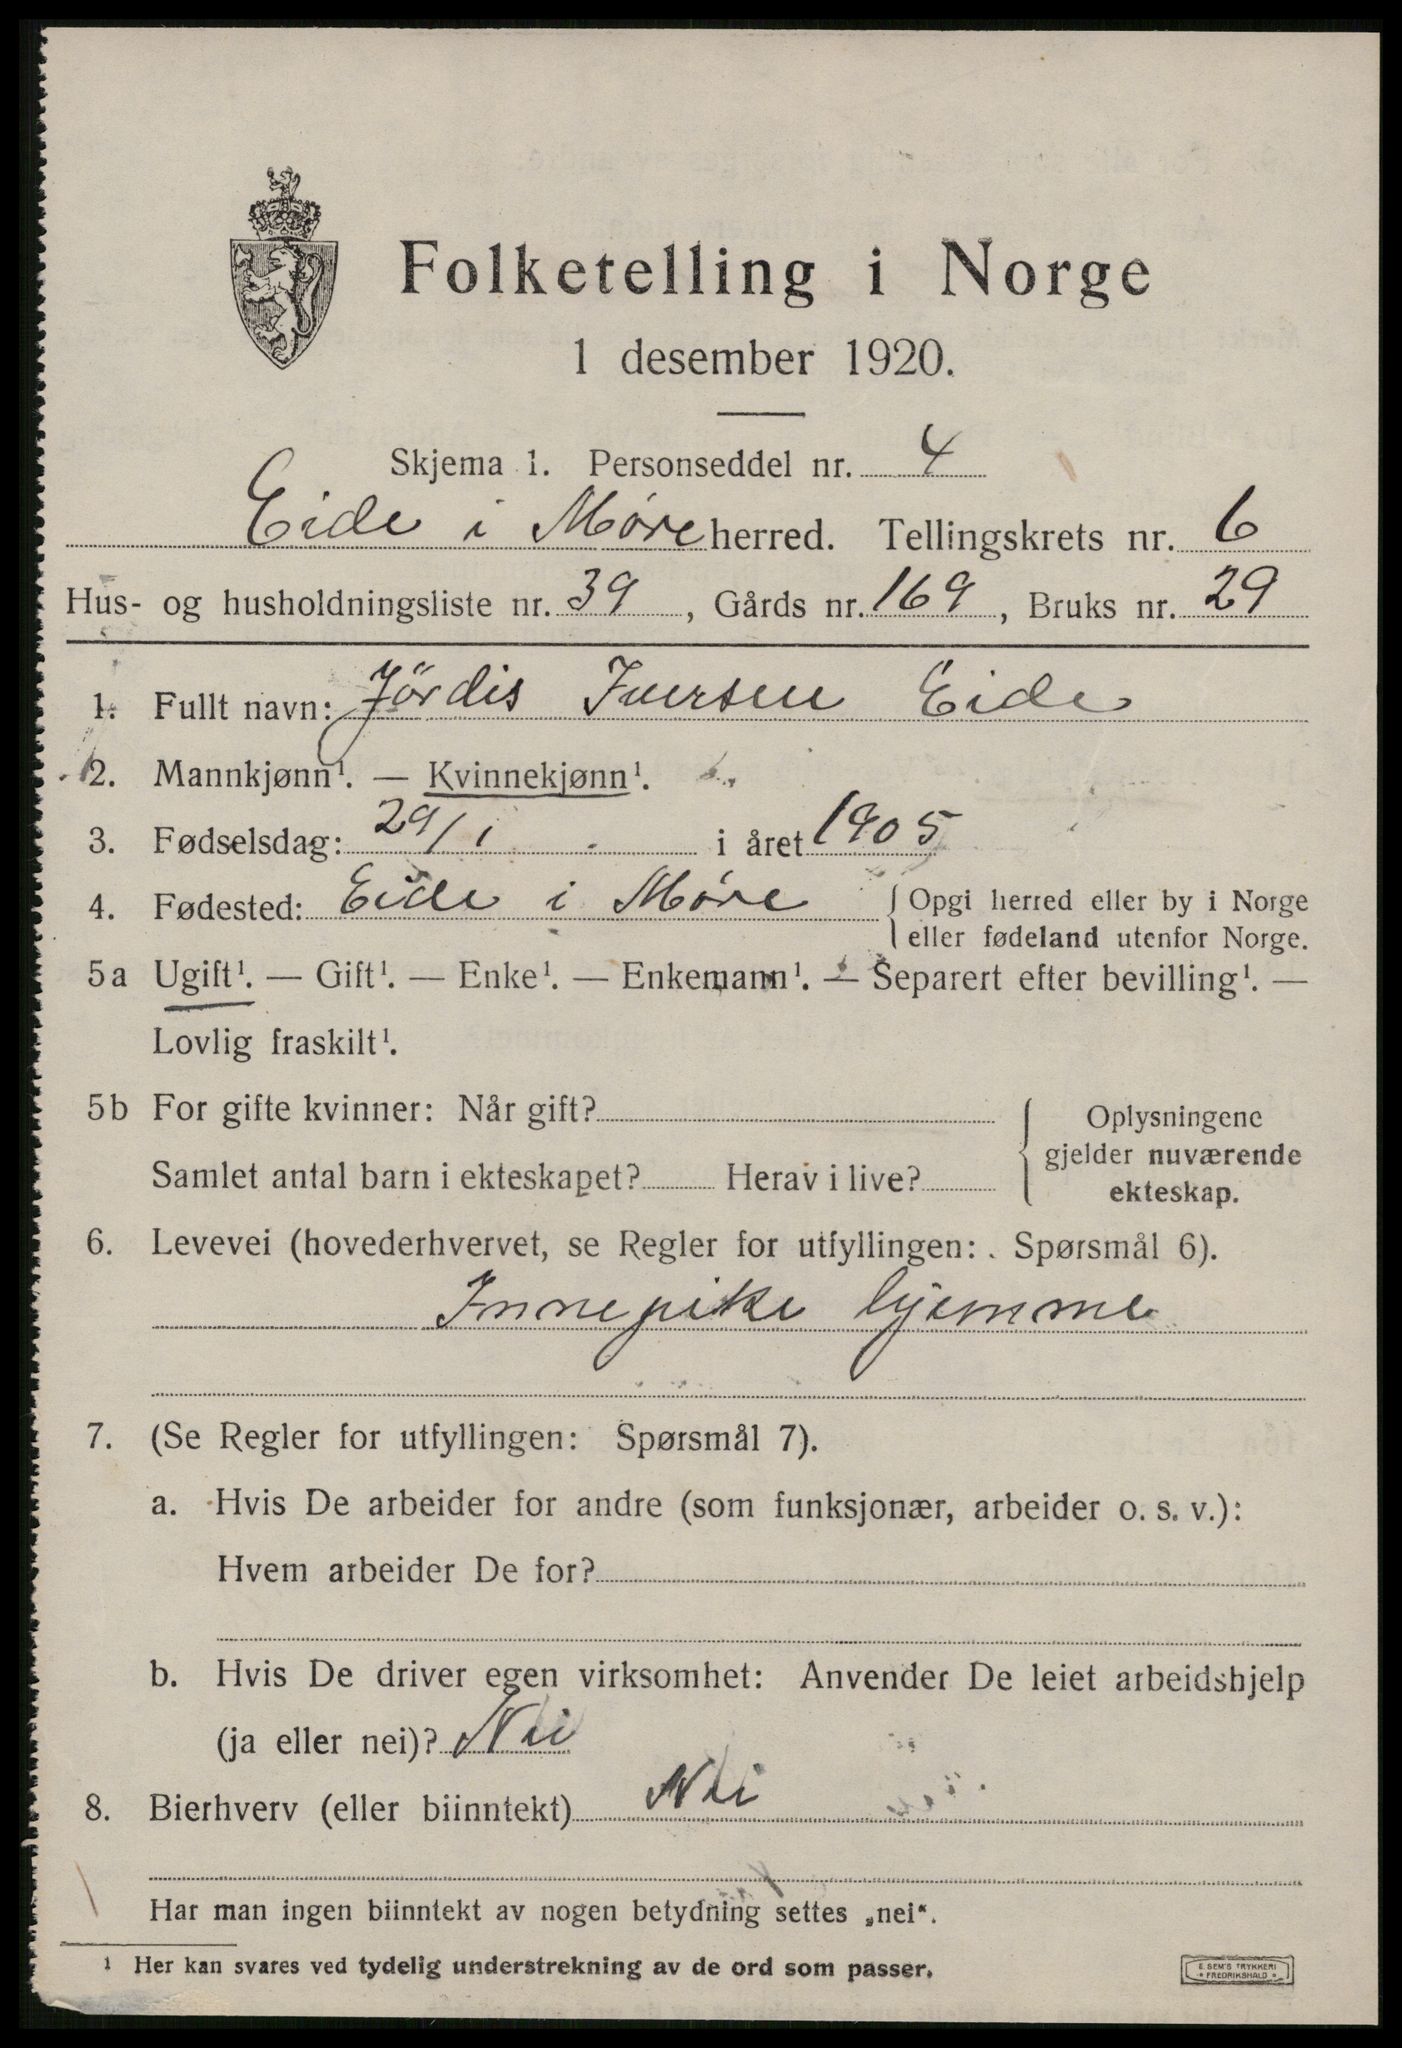 Folketelling i Norge
1 desember 1920.
Skjema 1. Personseddel nr. 4
Eide i Møre herred. Tellingskrets nr. 6
Hus- og husholdningsliste nr. 39, Gårds nr. 169, Bruks nr. 29
1. Fullt navn: Jördis Iversen Eide
2. Mannkjønn¹. — Kvinnekjønn¹.
3. Fødselsdag: 29/1 i året 1905
4. Fødested: Eide i Møre {Opgi herred eller by i Norge
eller fødeland utenfor Norge.
5a Ugift¹. — Gift¹. — Enke¹. — Enkemann¹. — Separert efter bevilling¹. —
Lovlig fraskilt¹.
5b For gifte kvinner: Når gift? {Oplysningene
gjelder nuværende
Samlet antal barn i ekteskapet? Herav i live? ekteskap.
6. Levevei (hovederhvervet, se Regler for utfyllingen: Spørsmål 6).
Innepike hjemme
7. (Se Regler for utfyllingen: Spørsmål 7).
a. Hvis De arbeider for andre (som funksjonær, arbeider o. s. v.):
Hvem arbeider De for?
b. Hvis De driver egen virksomhet: Anvender De leiet arbeidshjelp
(ja eller nei)? Nei
8. Bierhverv (eller biinntekt) Nei
Har man ingen biinntekt av nogen betydning settes „nei“.
¹ Her kan svares ved tydelig understrekning av de ord som passer.
E. SEM'S TRYKKERI
FREDRIKSHALD